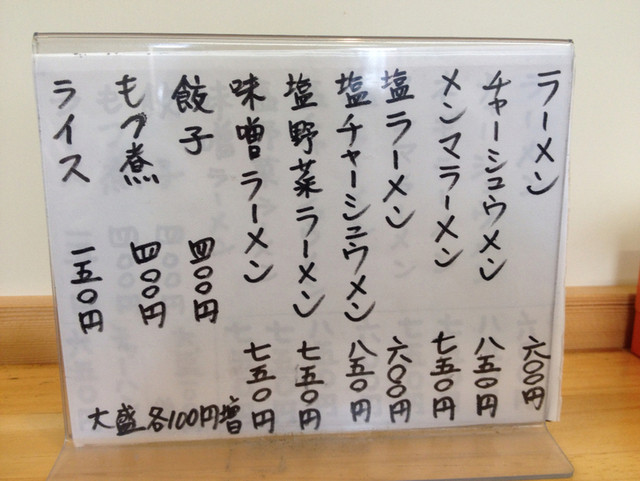 ラーメン 六〇〇円
チャーシュウメン 八五〇円
メンマラーメン 七五〇円
塩ラーメン 六〇〇円
塩チャーシュウメン 八五〇円
塩野菜ラーメン 七五〇円
味噌ラーメン 七五〇円
餃子 四〇〇円
もつ煮 四〇〇円
ライス 一五〇円
大盛各100円増